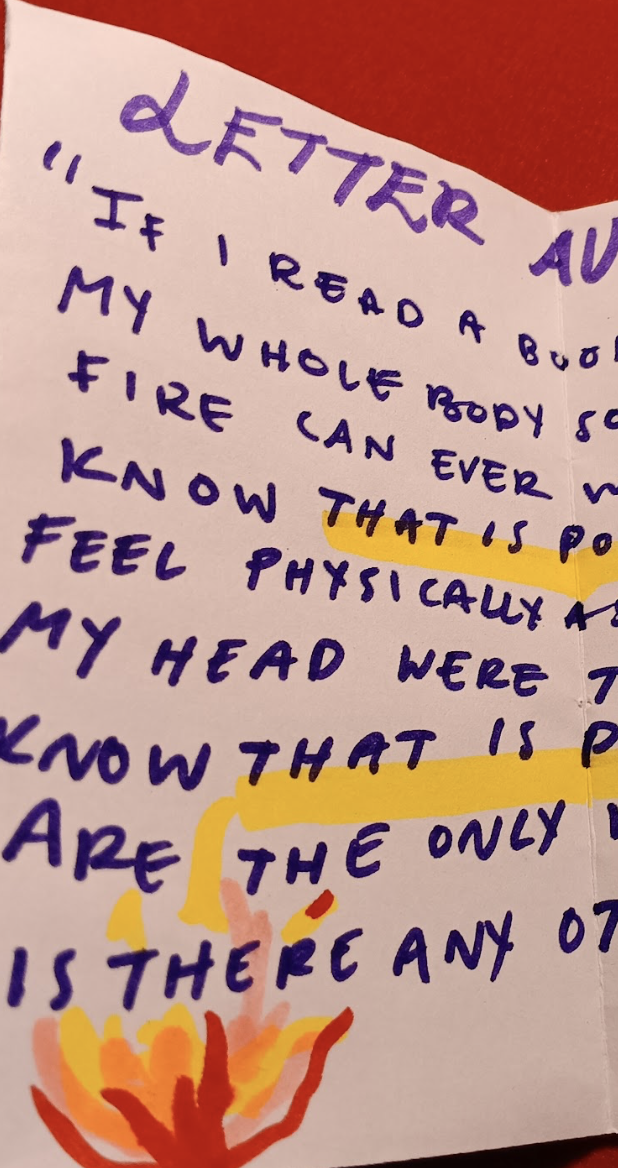 LETTER AU
"IF I READ A BOO
MY WHOLE BODY SO
FIRE CAN EVER W
KNOW THAT IS PO
FEEL PHYSICALLY AS
MY HEAD WERE T
KNOW THAT IS P
ARE THE ONLY
IS THERE ANY OT